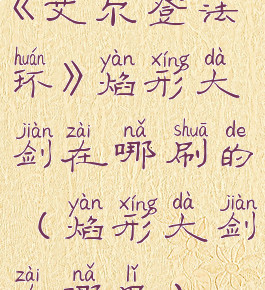 《艾尔登法
huán yàn xíng dà
环》焰形大
jiàn zài nǎ shuā de
剑在哪刷的
yàn xíng dà jiàn
（焰形大剑
zài nǎ lǐ